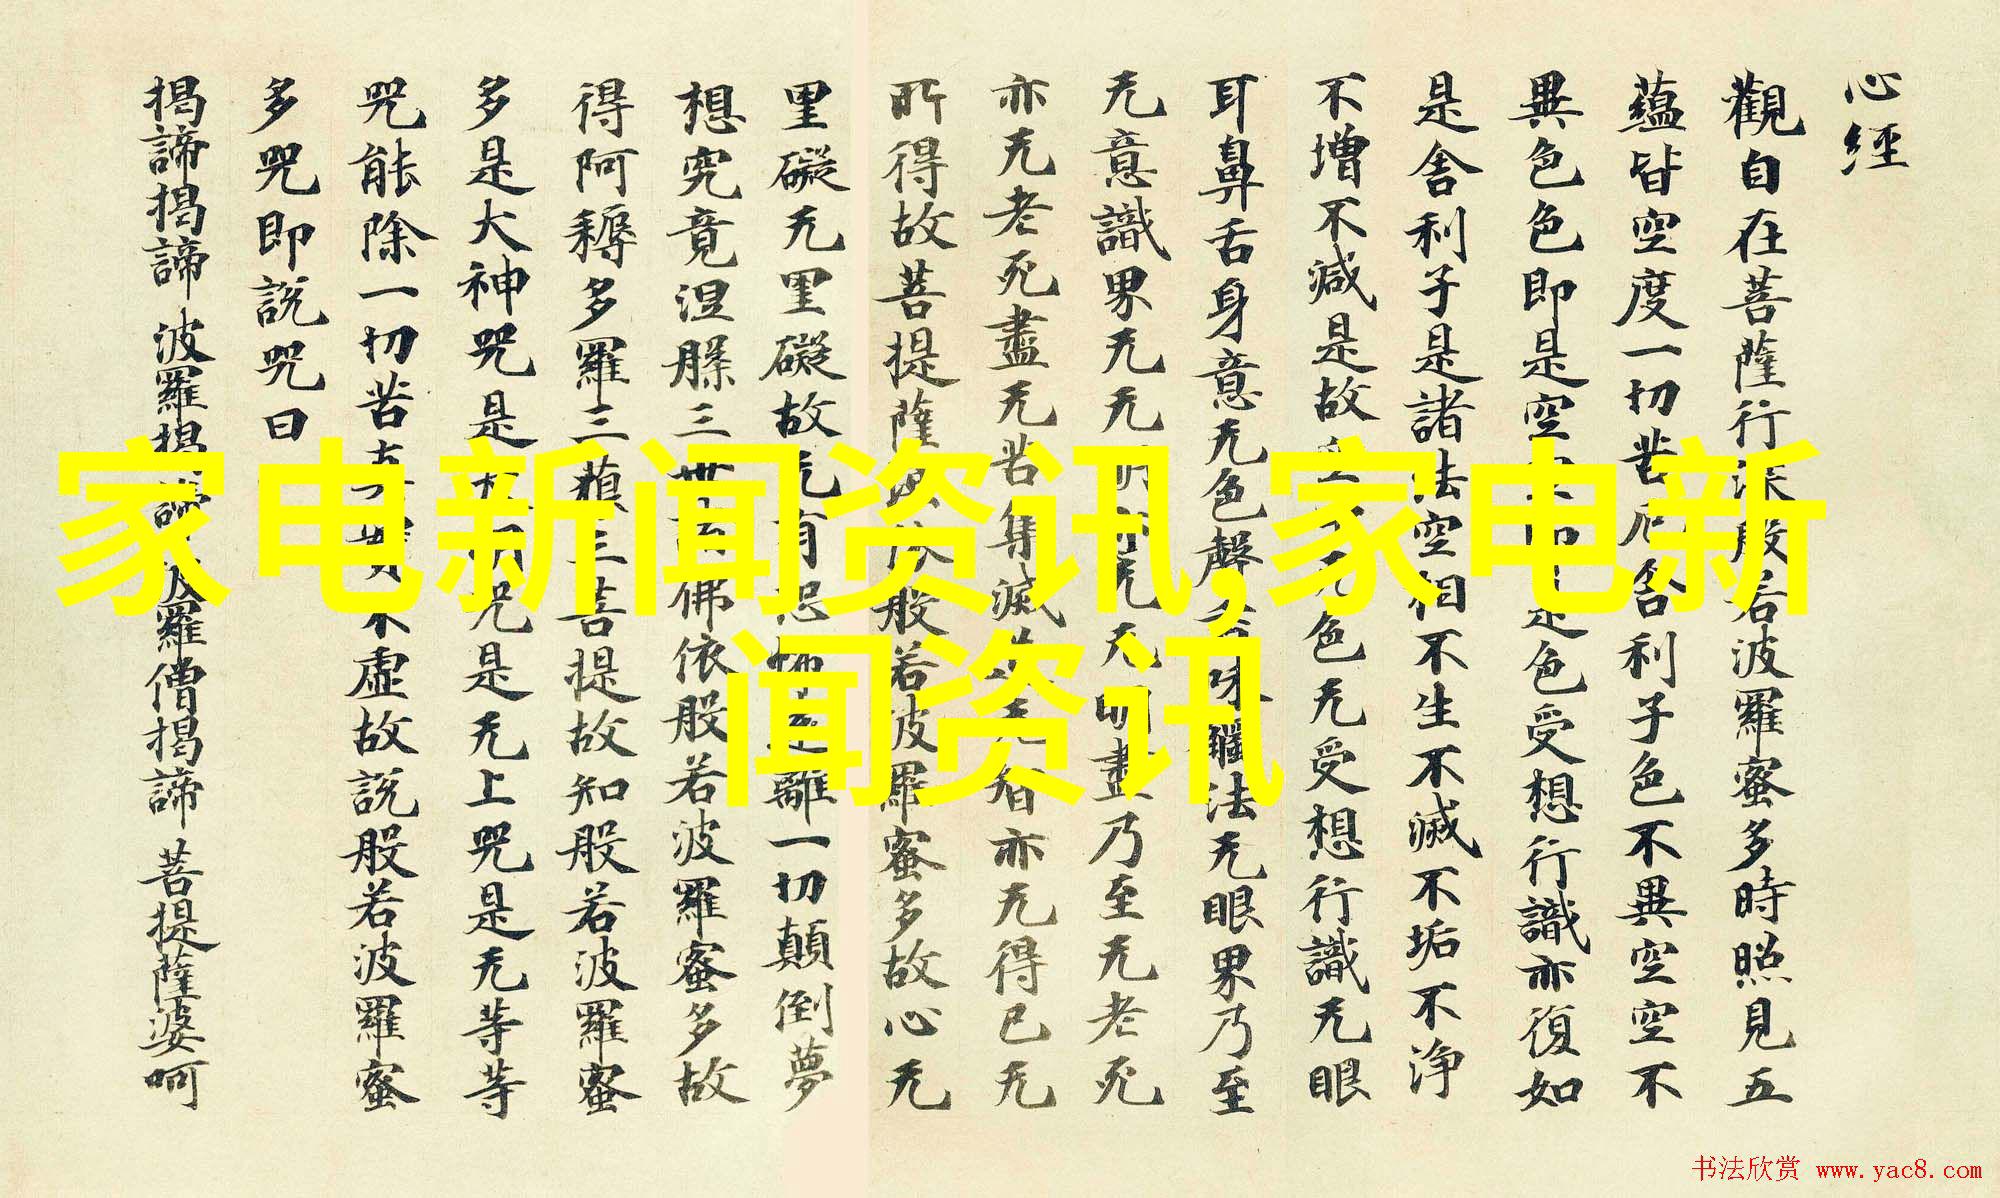 心經
觀自在菩薩行深般若波羅蜜多時照見五
蘊皆空度一切苦厄舍利子色不異空空不
異色色即是空空即是色受想行識亦復如
是舍利子是諸法空相不生不滅不垢不淨
不增不減是故空无色无受想行識无眼
耳鼻舌身意无色聲香味觸法无眼界乃至
无意識界无无明亦无无明盡乃至无老死
亦无老死盡无苦集滅道无智亦无得已无
所得故菩提薩埵依般若波羅蜜多故心无
罣礙无罣礙故无有恐怖遠離一切顛倒夢
想究竟涅槃三世諸佛依般若波羅蜜多故
得阿耨多羅三藐三菩提故知般若波羅蜜
多是大神咒是大明咒是无上咒是无等等
咒能除一切苦真實不虛故說般若波羅蜜
多咒即說咒曰
揭諦揭諦 波羅揭諦 波羅僧揭諦 菩提薩婆呵
家电新闻资讯,家电新
闻资讯
书法欣赏 www.yac8.com